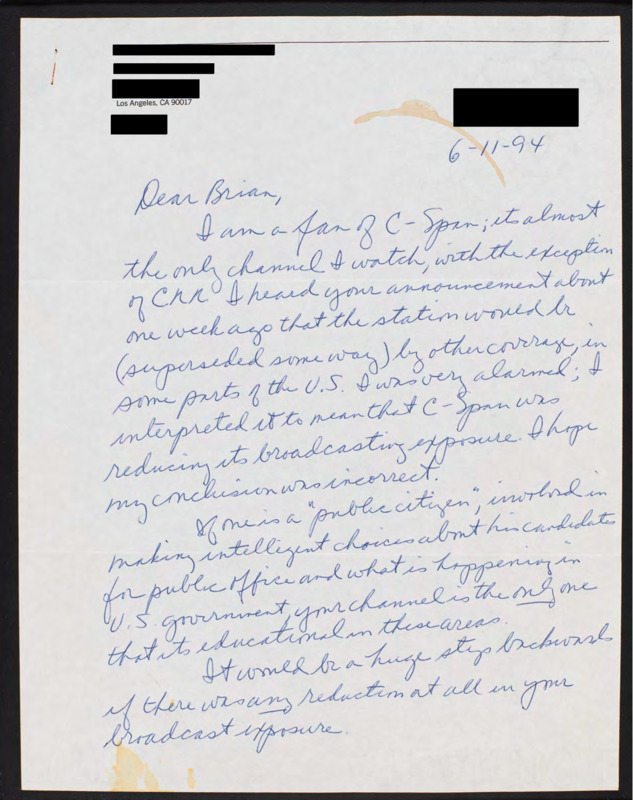 Los Angeles, CA 90017
6-11-94
Dear Brian,
I am a fan of C-Span; its almost
the only channel I watch, with the exception
of CNN I heard your announcement about
one week ago that the station would be
(superseded some way) by other coverage, in
some parts of the U.S. I was very alarmed; I
interpreted it to mean that C-Span was
reducing its broadcasting exposure. I hope
my conclusion was incorrect.
If one is a "public citizen", involved in
making intelligent choices about his candidates
for public office and what is happening in
U.S. government your channel is the only one
that its educational in these areas.
It would be a huge step backwards
if there was any reduction at all in your
broadcast exposure.